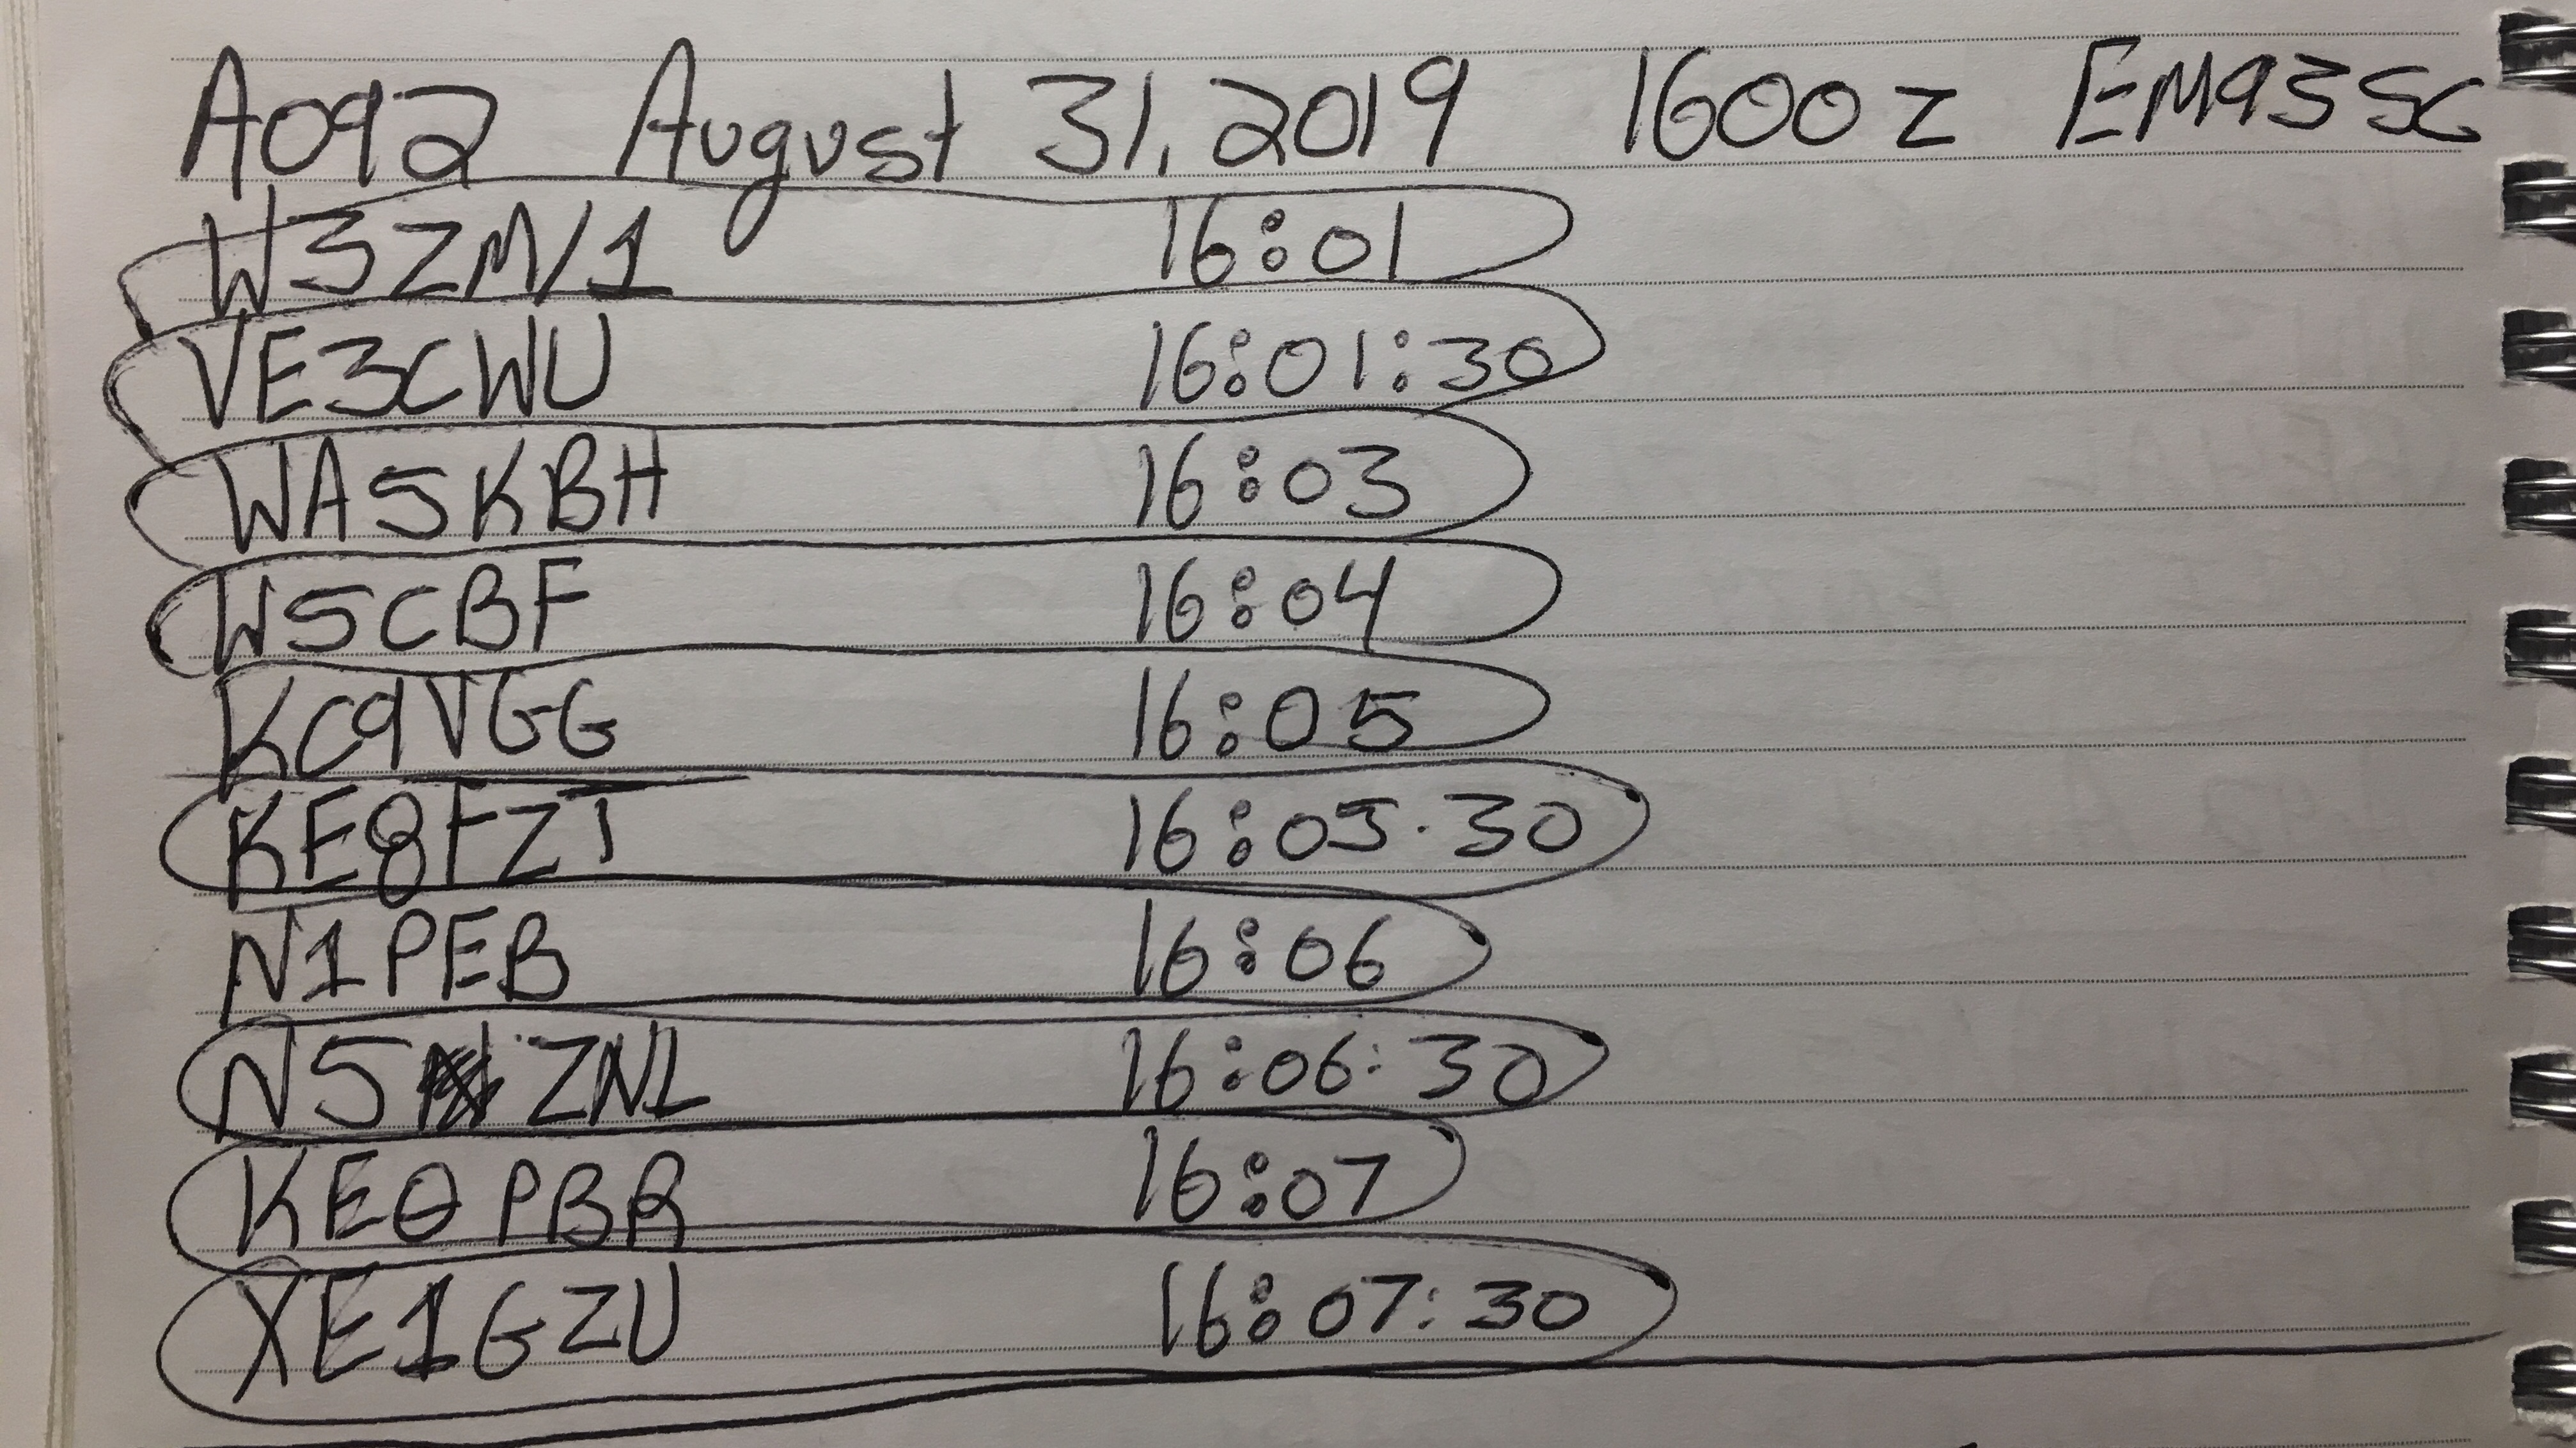 A092 August 31, 2019 1600z EM93SG
W3ZM/1 16:01
VE3CWU 16:01:30
WA5KBH 16:03
W5CBF 16:04
KC9VGG 16:05
KE8FZT 16:05.30
N1PEB 16:06
N5 ZNL 16:06:30
KE0PBR 16:07
XE1GZU 16:07:30